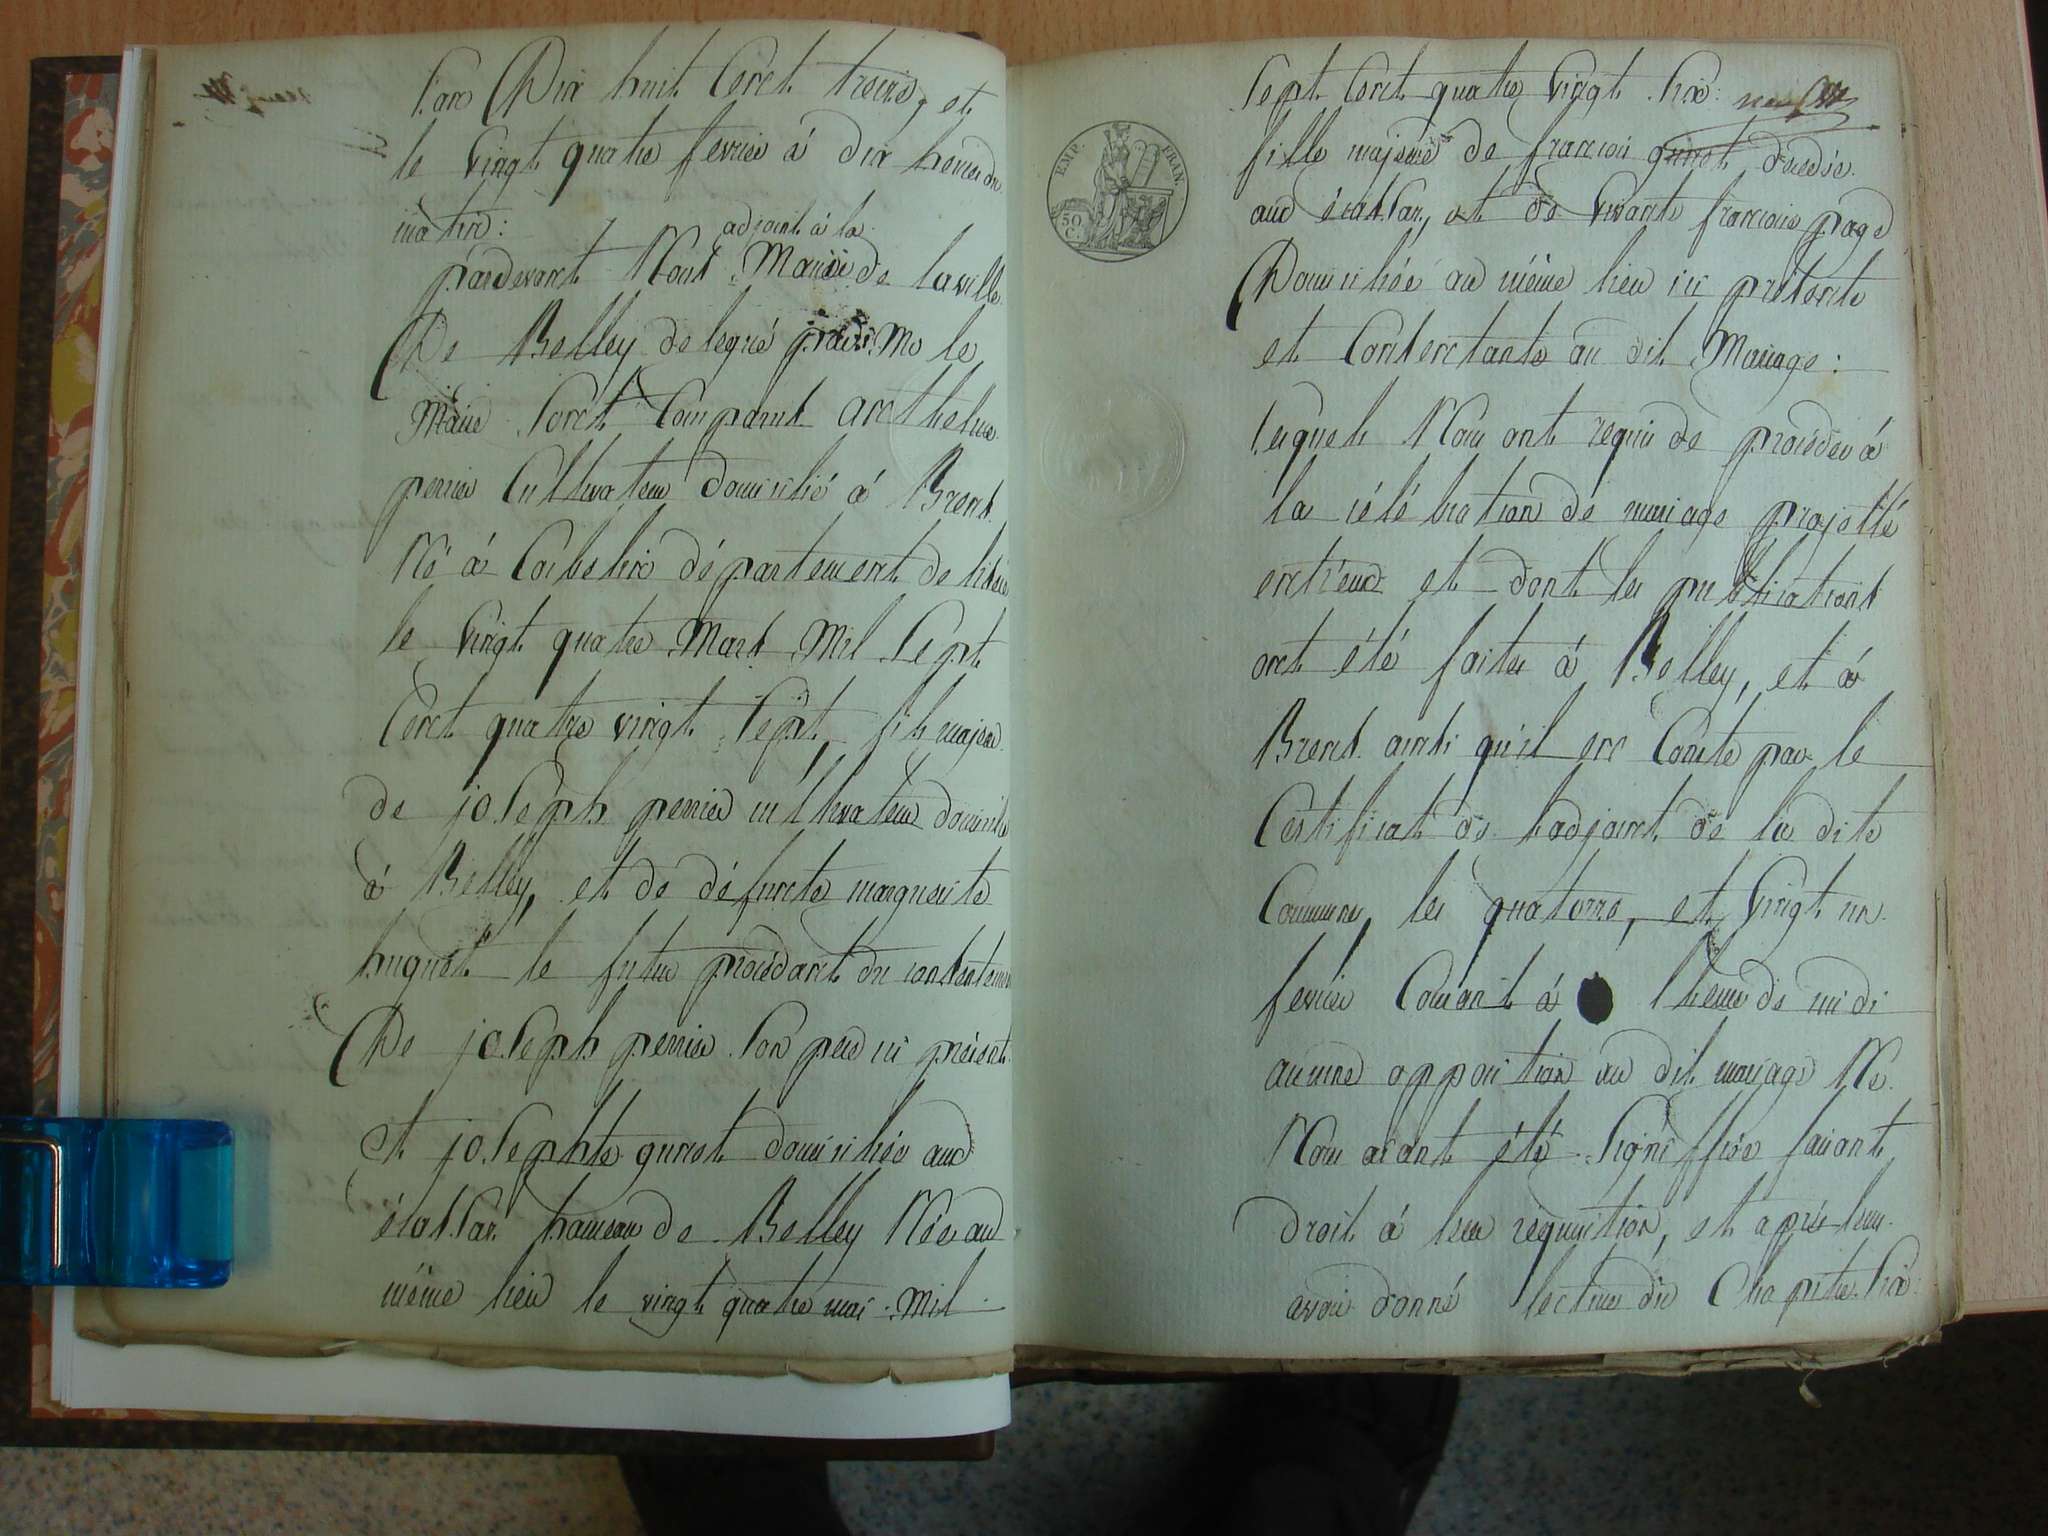 l'an Dix huit Cent treize, et
le Vingt quatre fevrier à dix heures du
matin:
adjoint à la
pardevant Nous Mairie de la ville
De Belley delegué par Mr le
Maire Sont Comparus anthelme
perrier Cultivateur domicilié à Brens
Né à Corbelin département de l'isère
le Vingt quatre Mars Mil Sept
Cent quatre vingt Sept, fils majeur
de joseph perrier cultivateur domicilié
à Belley, et de défunte marguerite
huguet le futur procédant du consentement
De joseph perrier Son père ici présent
Et josephte guinet domiciliée aux
écassaz hameau de Belley Née au
même lieu le vingt quatre mai Mil
Sept Cent quatre Vingt Six:
fille majeure de francois guinet décédé
aux écassaz, et de vivante francoise page
Domiciliée au même lieu ici présente
et Consentante au dit Mariage:
lesquels Nous ont requis de procéder à
la célébration de mariage projetté
entr'eux et dont les publications
ont été faites à Belley, et à
Brens ainsi qu'il en Conste par le
Certificat de l'adjoint de la dite
Commune, les quatorze, et Vingt un
fevrier Courant à l'heure de midi
aucune opposition au dit mariage Ne
Nous aiant été Signiffiée faisant
droit à leur réquisition, et après leur
avoir donné lecture du Chapitre Six
EMP. FRAN.
50 C.